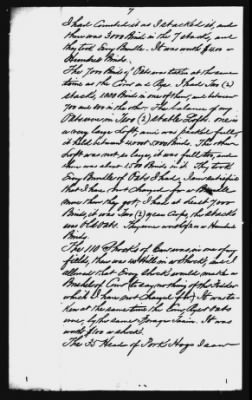 7
I had Counted it as I stacked it, and
there was 3000 Binds in the 7 stacks, and
they took Every Bundle. It was worth $ a
Hundred Binds.
The 7000 Binds of Oats was taken at the same
time as the Corn and Rye. I had Two (2)
stacks, 1000 Binds in one of them, and between
700 and 800 in the other. The balance of my
Oats was in Two (2) stable Lofts. One is
a very large Loft, and was packed full,
it held about 4000 Binds. The other
Loft was not so large, it was full too, and
there was about 1500 Binds in it. They took
Every Bundle of Oats I had, I am satisfied
that I have not charged for a Bundle
more than they got, I had at least 7000
Binds, it was Two (2) years Crops, the stacks
was Old Oats. They were worth $ a Hundred
Binds.
The 110 Shocks of Corn was in one of my
fields, there was Hills in a Shock, and I
allowed that Every shock would make a
Bushel of Corn to say nothing of the Fodder
which I have not charged for. It was ta-
ken at the same time the Rye & Oats
was, by the same Forage Train. It was
worth $1.00 a shock.
The 35 Head of Stock Hogs I saw